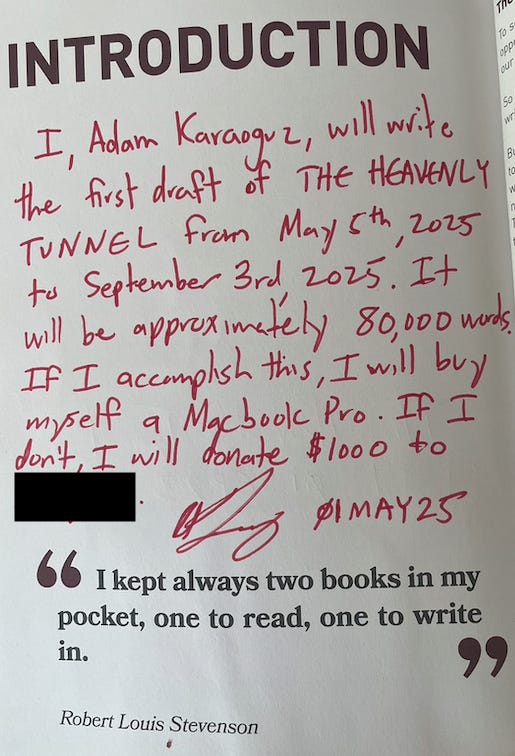 INTRODUCTION
I, Adam Karaoguz, will write
the first draft of THE HEAVENLY
TUNNEL from May 5th, 2025
to September 3rd, 2025. It
will be approximately 80,000 words.
If I accomplish this, I will buy
myself a Macbook Pro. If I
don't, I will donate $1000 to
.
01MAY25
“ I kept always two books in my
pocket, one to read, one to write
in. ”
Robert Louis Stevenson